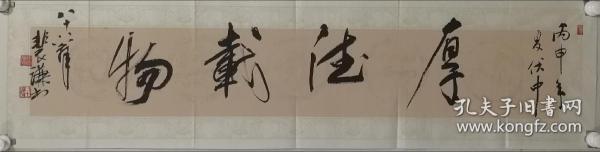 丙申年
夏伏中
厚德載物
八十六叟
裴謙書
孔夫子旧書網
www.kongfz.com